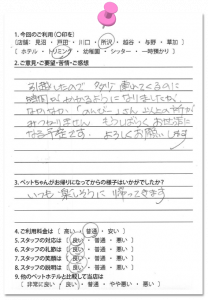 1.今回のご利用(○印を)
(店舗:見沼・戸田・川口・所沢・越谷・与野・草加)
[ホテル・トリミング・幼稚園・シッター・一時預かり]
2.ご意見・ご要望・苦情・ご感想
引越したので 多少 車でくるのに
時間がかかるようになりましたが、
なかなか 以上の所が
みつかりません。もうしばらくお世話に
なる予定です。よろしくお願いします
3.ペットちゃんがお帰りになってからの様子はいかがでしたか?
いつも 楽しそうに 帰ってきます
4.ご利用料金は(高い・普通・安い)
5.スタッフの対応は(良い・普通・悪い)
6.スタッフの礼節は(良い・普通・悪い)
7.スタッフの笑顔は(良い・普通・悪い)
8.スタッフの説明は(良い・普通・悪い)
9.他のペットホテルと比較して当店は
(非常に良い・良い・普通・やや悪い・悪い)